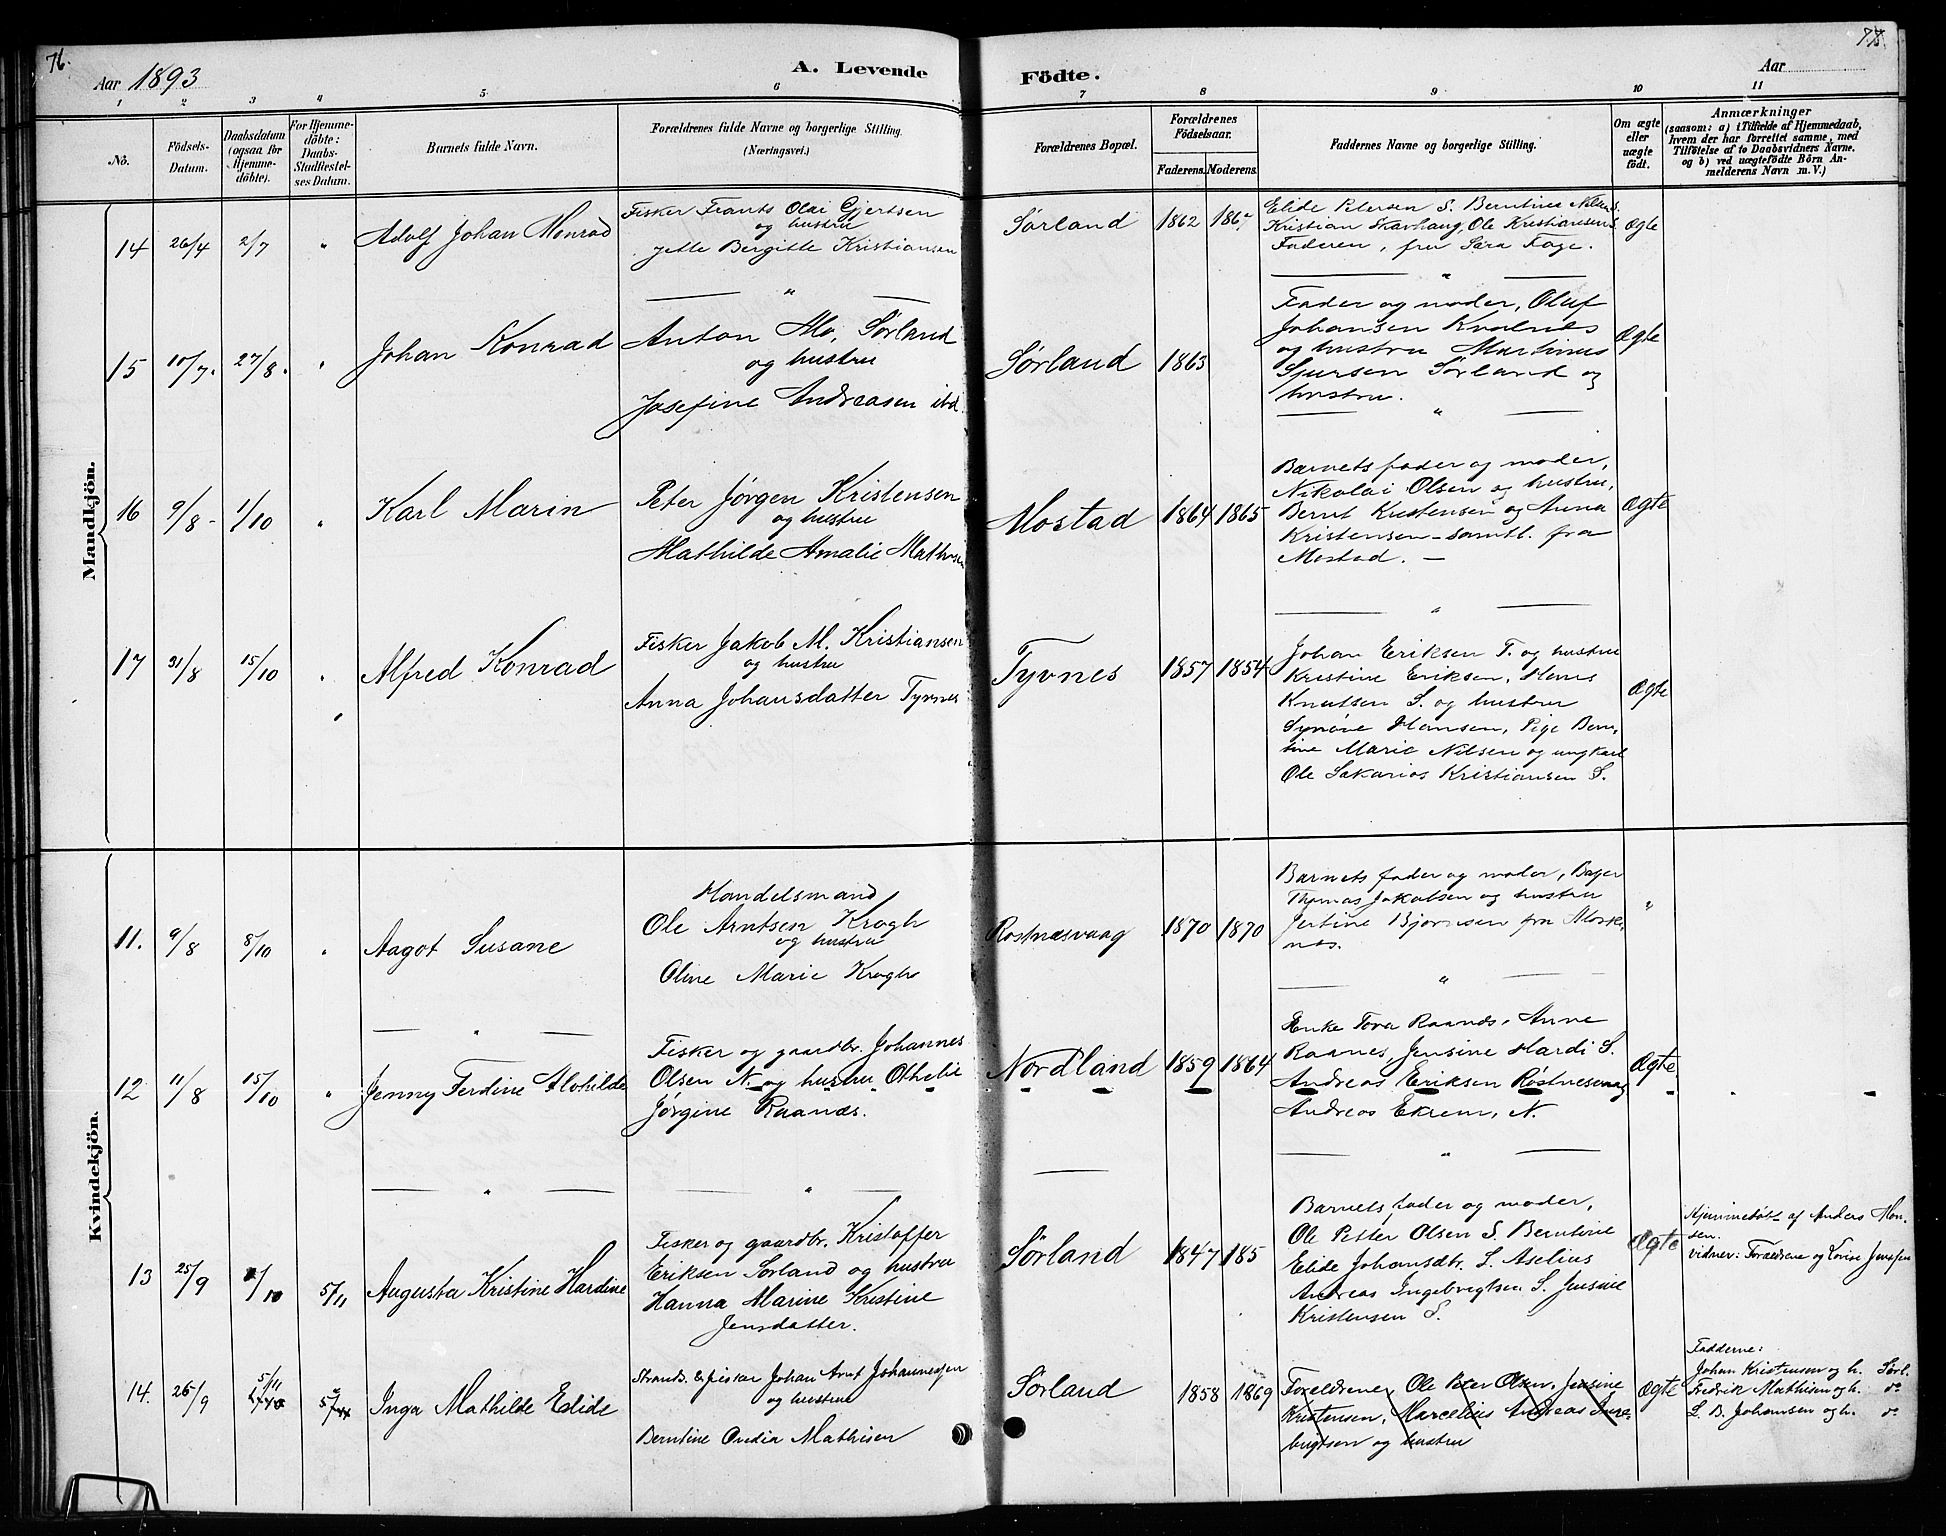 76.
78.
Aar 1893
A. Levende
Födte.
Aar
1 2 3 4 5 6
7 8 9 10 11
No.
Födsels-
Datum.
Daabsdatum
(ogsaa for
Hjemme-
döbte).
For Hjemme-
döbte:
Daabs-
Stadfæstel-
ses Datum.
Barnets fulde Navn.
Forældrenes fulde Navne og borgerlige Stilling.
(Næringsvei.)
Forældrenes Bopæl.
Forældrenes
Födselsaar.
Faderens. Moderens.
Faddernes Navne og borgerlige Stilling.
Om ægte
eller
uægte
födt.
Anmærkninger
(saasom: a) i Tilfælde af Hjemmedaab,
hvem der har forrettet samme, med
Tilföielse af to Daabsvidners Navne.
og b) ved uægtefödte Börn An-
melderens Navn m. V.)
Mandkjön.
14
26/4
2/7
"
Adolf Johan Monrad
Fisker Frants Olai Gjertsen
og hustru
Jette Bergitte Kristiansen
Sørland
1862
Elide Petersen S. Berntine Nilsen S.
Kristian Skavhaug, Ole Kristiansen S.
Faderen, fru Sara Fage.
Ægte
15
10/7.
27/8.
"
Johan Konrad
Anton Mo, Sørland
og hustru
Josefine Andreasen ibd
Sørland
1863
Fader og moder, Oluf
Johansen Kvalnes
og hustru Martinus
Sjursen Sørland og
hustru.
Ægte
16
9/8
1/10
"
Karl Marin
Peter Jørgen Kristensen
og hustru
Mathilde Amalie Mathisen
Mostad
1864 1865
Barnets fader og moder,
Nikolai Olsen og hustru,
Bernt Kristensen og Anna
Kristensen - samtl. fra
Mostad. —
Ægte
17
31/8
15/10
"
Alfred Konrad
Fisker Jakob M. Kristiansen
og hustru
Anna Johansdatter Tyvnes
Tyvnes
1857 1854
Johan Eriksen T. og hustru
Kristine Eriksen, Hans
Knutsen S. og hustru
Synøve Hansen, Pige Bern-
tine Marie Nilsen og ungkarl
Ole Sakarias Kristiansen S.
Ægte
Kvindekjön.
11.
9/8
8/10
"
Aagot Susane
Handelsmand
Ole Arntsen Krogh
og hustru
Oline Marie Krogh
Røstnæsvaag
1870 1870
Barnets fader og moder, Bager
Thomas Jakobsen og hustru
Jertine Bjørnsen fra Moske-
næs.
"
12
11/8
15/10
"
Jenny Ferdine Alohilde
Fisker og gaardbr. Johannes
Olsen N. og hustru Othelie
Jørgine Raanæs.
Nordland
1859 1864
Enke Tova Raanæs, Anne
Raanes, Jensine Hardi S.
Andreas Eriksen Røstnesvaag
Andreas Ekrem, N.
Ægte
13
25/9
/10
5/11
Augusta Kristine Hardine
Fisker og gaardbr. Kristoffer
Eriksen Sørland og hustru
Hanna Marine Kristine
Jensdatter.
Sørland
1847 185
Barnets fader og moder,
Ole Petter Olsen S. Berntine
Elide Johansdbr. S. Aselius
Andreas Ingebrigtsen S. Jensine
Kristensen S.
Ægte
Hjemmedøbt af Anders Han-
sen.
vidner: Forældrene og Lovise Jenssen
14.
26/9
5/11
Inga Mathilde Edide
Strands. & fisker Johan Arnt Johannessen
og hustru
Berntine Ovedia Mathisen
Sørland
1858 1869
Forældrene, Ole Peter Olsen, Jensine
Kristensen, Marcelius Andreas Inge-
brigtsen og hustru
Ægte
Fadderne:
Johan Kristensen og h. Sørl.
Fredrik Mathisen og h. do
L. B. Johansen og h. do